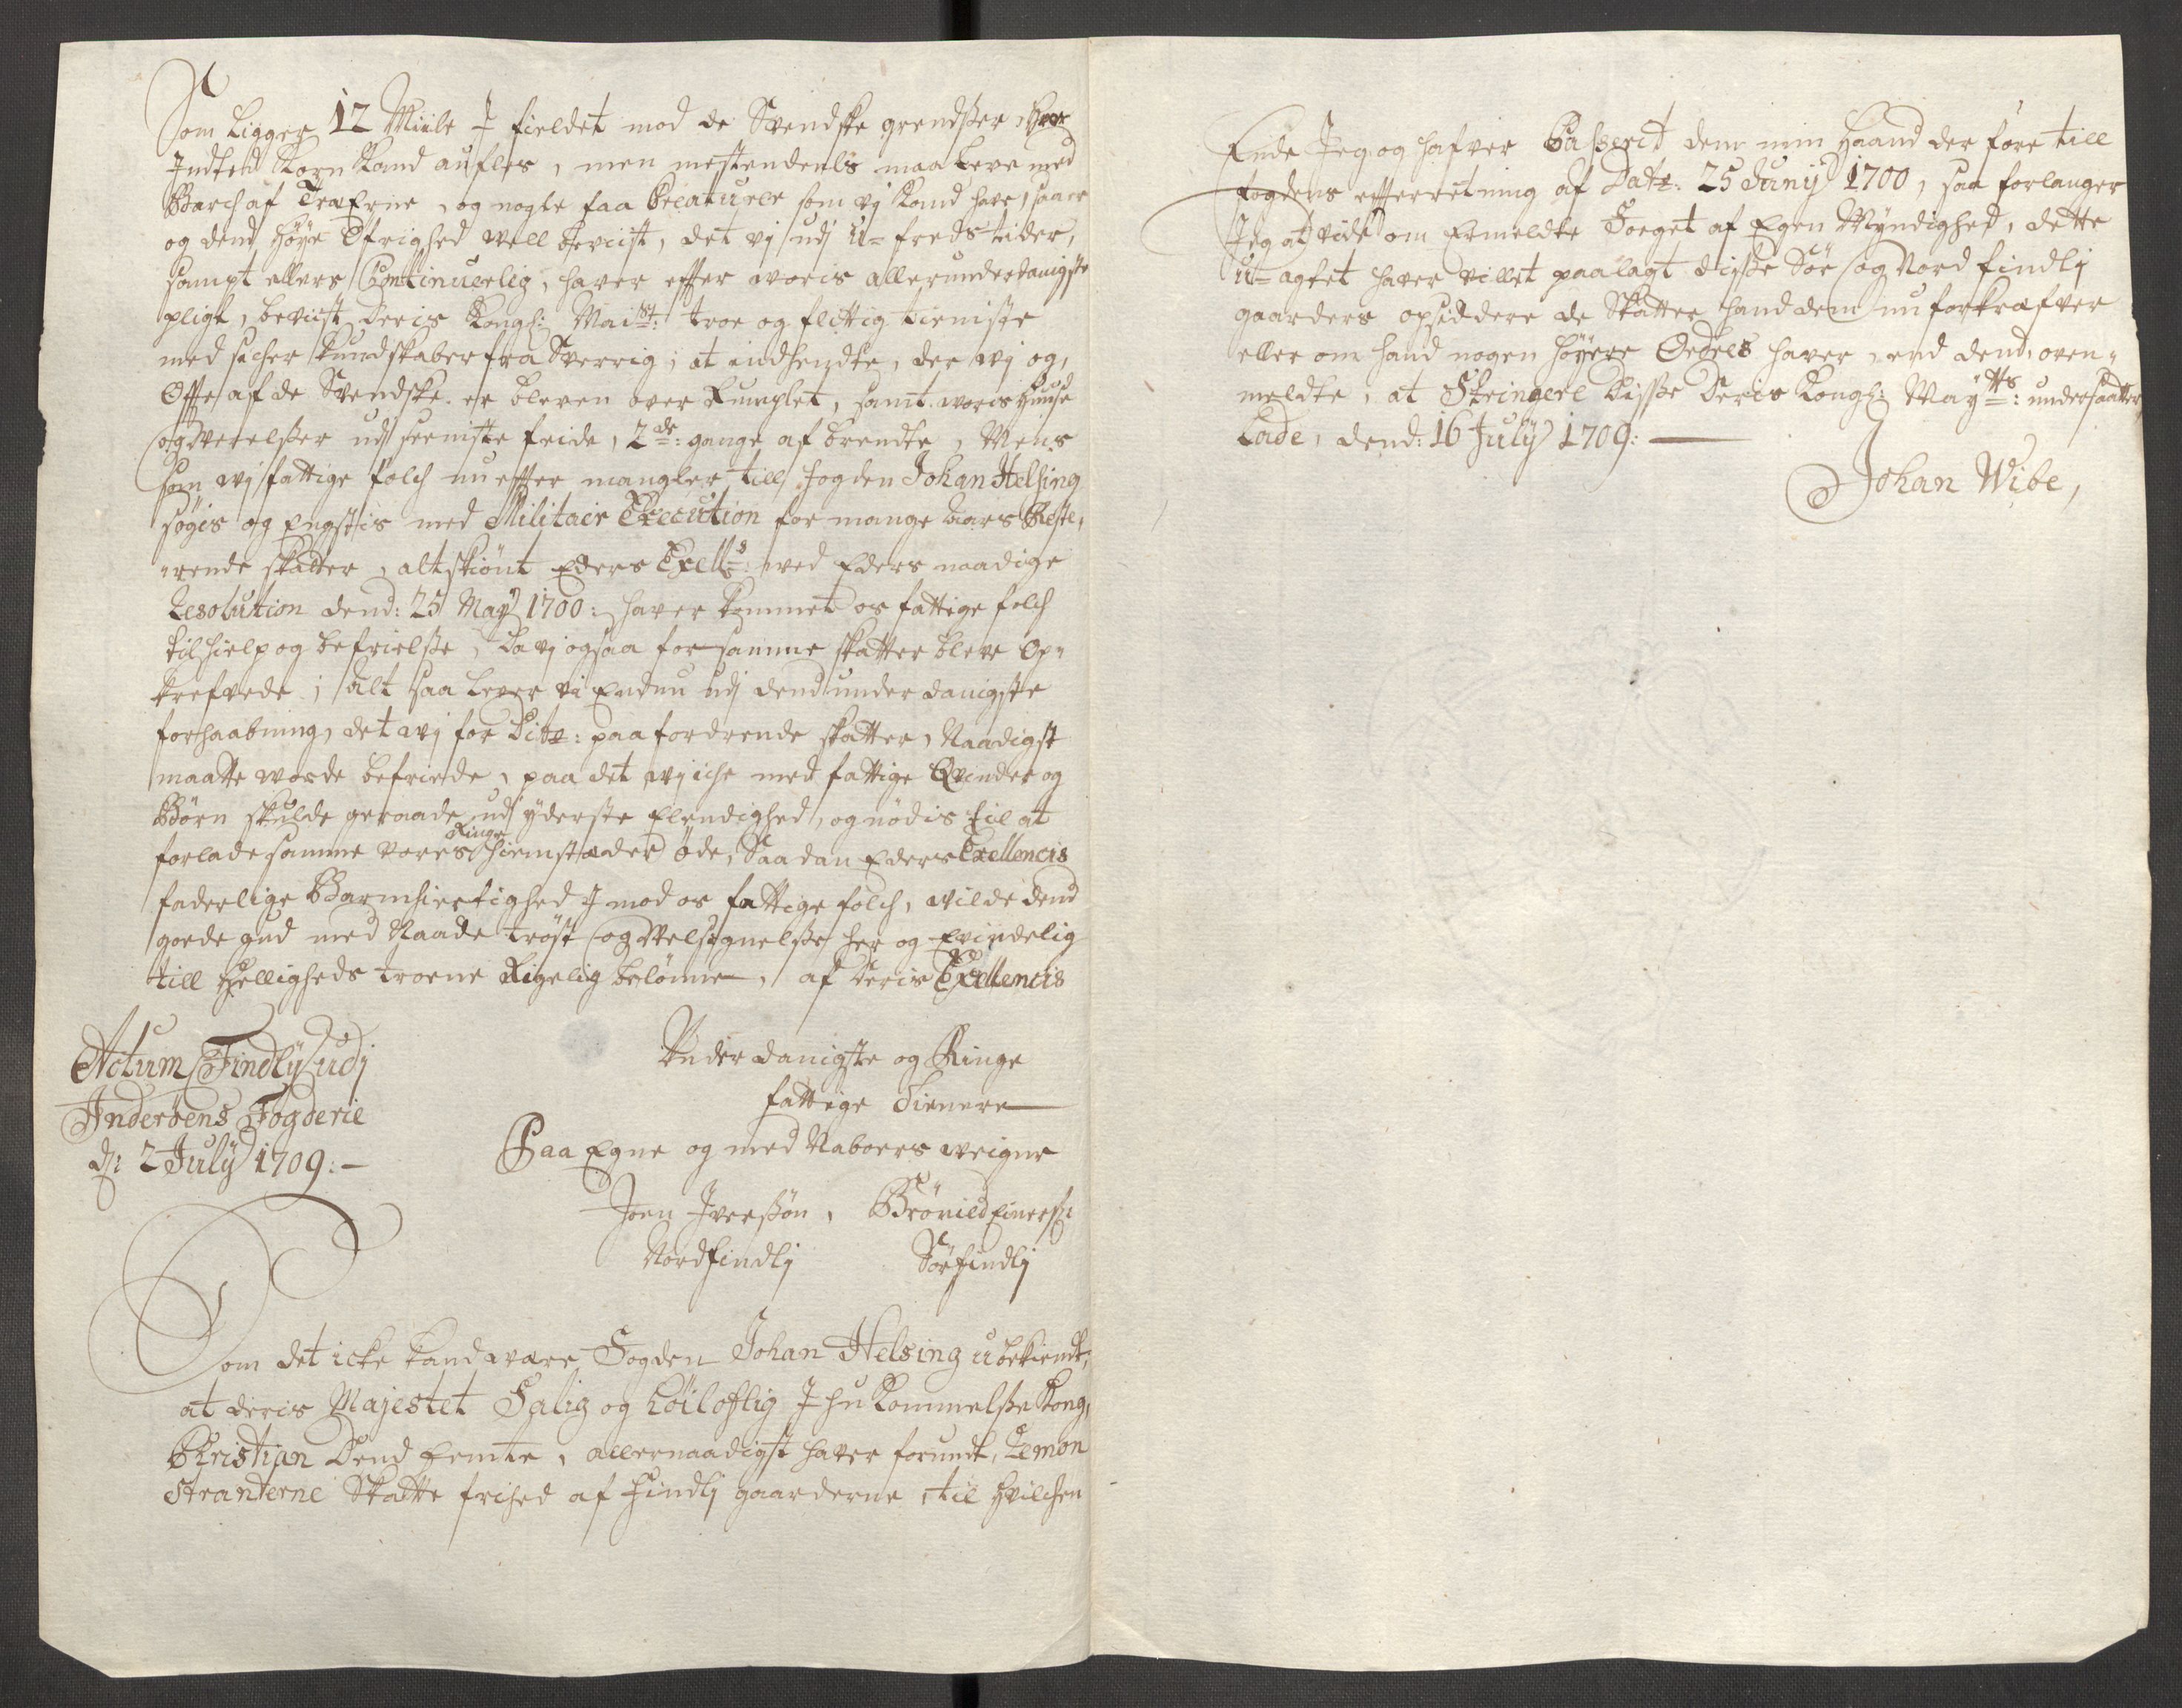 Som ligger 12 Miile J fieldet mod de Svendske grendsser, hvor
Indted Korn kand aufles, men mestendeels maa leve med
Barch af Træerne, og nogle faa Creaturer som vj kand have, saa er
og dend høye Øfrighed well beviist, det vj udj U-freds tider,
sampt ellers Continuerlig, haver effter woris allerunderdanigste
pligt, beviist Deris Kongl: Maist: troe og flittig tieniste
med sicher kundskaber fra Sverrig, at indhendte, der wj og,
Offte af de Svendske er bleven over Rumplet, samt woris Huuse
og Werelsser udj seeniste feide, 2de: gange af brendte, Mens
som wj fattige folch nu effter mangler till fogden Johan Helsing
søgis og Engstis med Militair Execution for mange aars Reste,
"rende skatter, alt skiønt Eders Exells: wed Eders naadige
Resolution dend: 25 Maÿ 1700: haver kommet os fattige folch
til hielp og befrielsse, da vj ogsaa for samme skatter bleve Op"
krefvede; Alt saa lever vi Endnu udj dend underdanigste
forhaabning, det wj for Ditto: paafordrende skatter, Naadigst
maatte worde befriede, paa det wj iche med fattige Qvinder og
Børn skulde geraade udj yderste Elendighed, og nødis til at
forlade samme vores Ringe hiemstæder Øde, Saadan Eders Exellencis
faderlige Barmhiertighed J mod os fattige folch, wilde dend
goede gud med Naade trøst og Welsignelsse her og Evindelig
till Helligheds troene Rigelig belønne, af Deris Exellencis
Actum Findlÿ udj
Inderøens Fogderie
d: 2 Julÿ 1709:
Underdanigste og Ringe
fattige Tienere
Paa Egne og med Naboers weigne
Joen Iverssøn, Brønild Einersn
Nordfindlj Sørfindlj
Som det icke kand være Fogden Johan Helsing ubekiendt,
at deris Majestet Salig og Løiloflig J hu Kommelsse Kong,
Christian Dend Femte, allernaadigst haver forundt, Remon
stranterne Skatte frihed af Findlj gaarderne, til Hvilchen
Ende Jeg og hafver Passerit dem min Haand der føre till
fogdens effterretning af Dato: 25 Junÿ 1700, saa forlanger
Jeg at vide om Ermeldte Foeget af Egen Myndighed, dette
U-agtet haver villet paalagt disse Sør og Nord findlj
gaarders opsiddere de Skatter hand dem nu forkræfver
eller om hand nogen høyere Ordres haver, end dend, oven"
meldte, at Stringere disse Deris Kongl: Mayts: undersaatter
Lade, dend: 16 Julÿ 1709:
Johan Wibe,